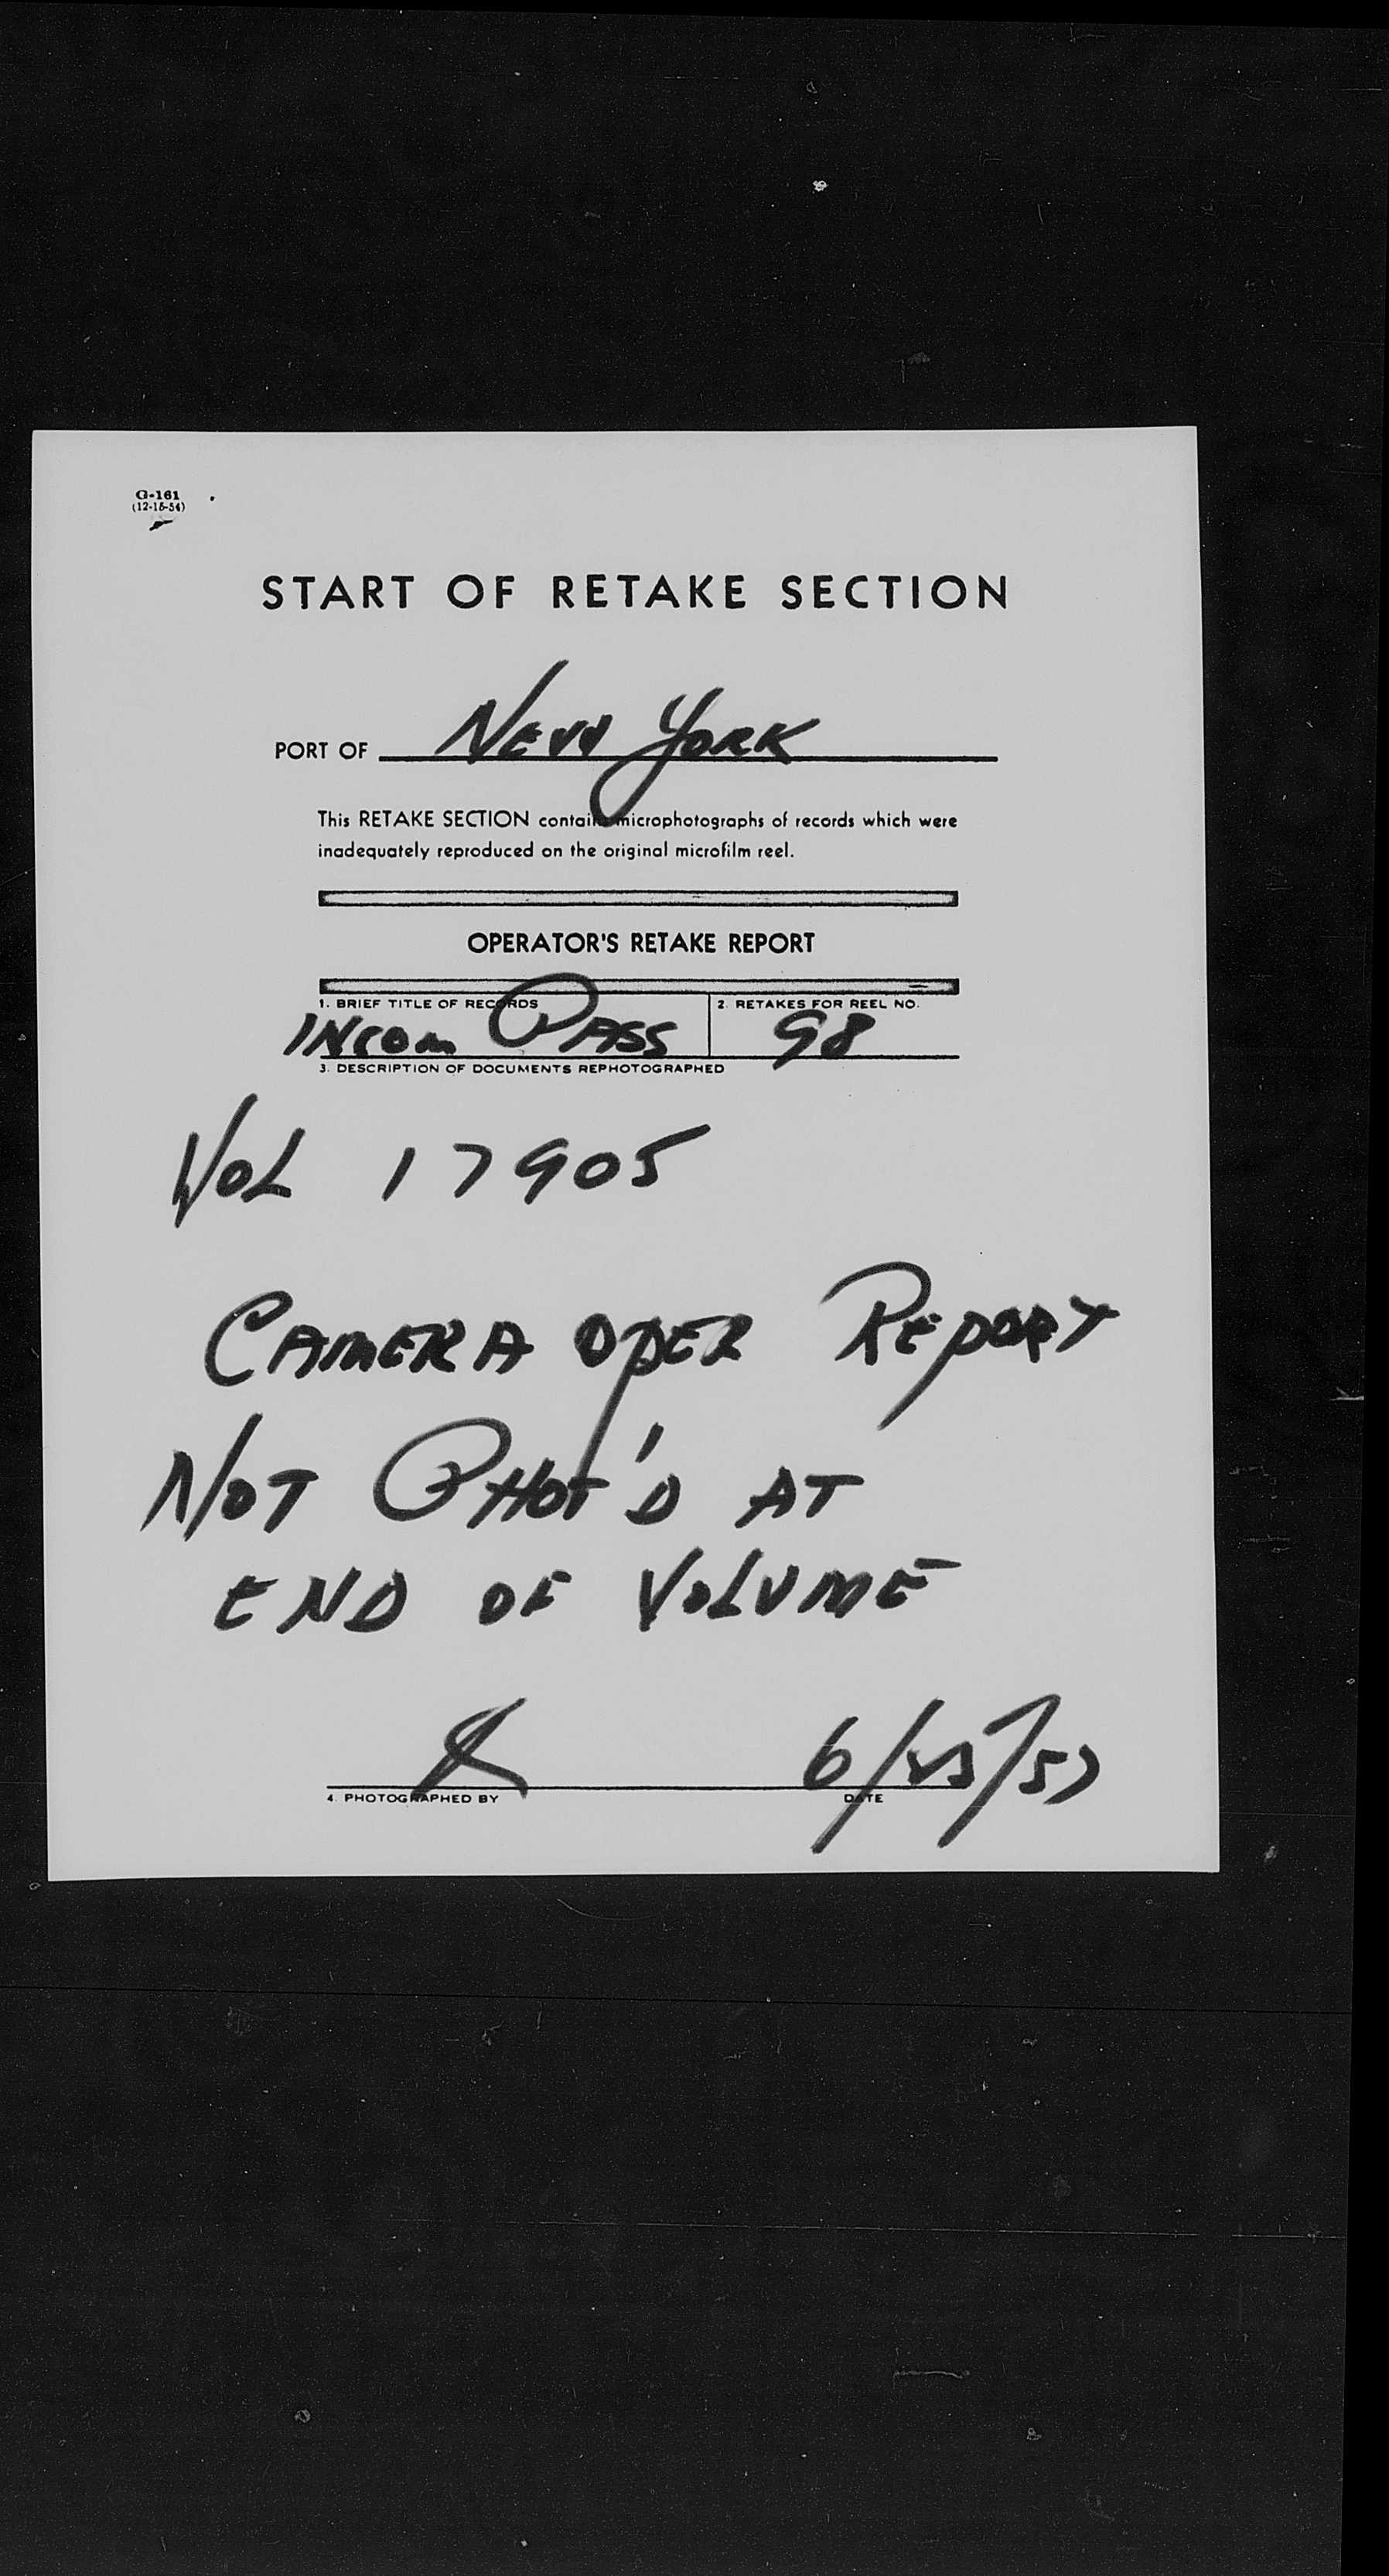 G-161
(12-15-54)
START OF RETAKE SECTION
PORT OF NEW YORK
This RETAKE SECTION contains microphotographs of records which were
inadequately reproduced on the original microfilm reel.
OPERATOR'S RETAKE REPORT
1. BRIEF TITLE OF RECORDS 2. RETAKES FOR REEL NO.
INCOM PASS 98
3. DESCRIPTION OF DOCUMENTS REPHOTOGRAPHED
VOL 17905
CAMERA OPER REPORT
NOT PHOT'D AT
END OF VOLUME
6/25/57
4. PHOTOGRAPHED BY DATE